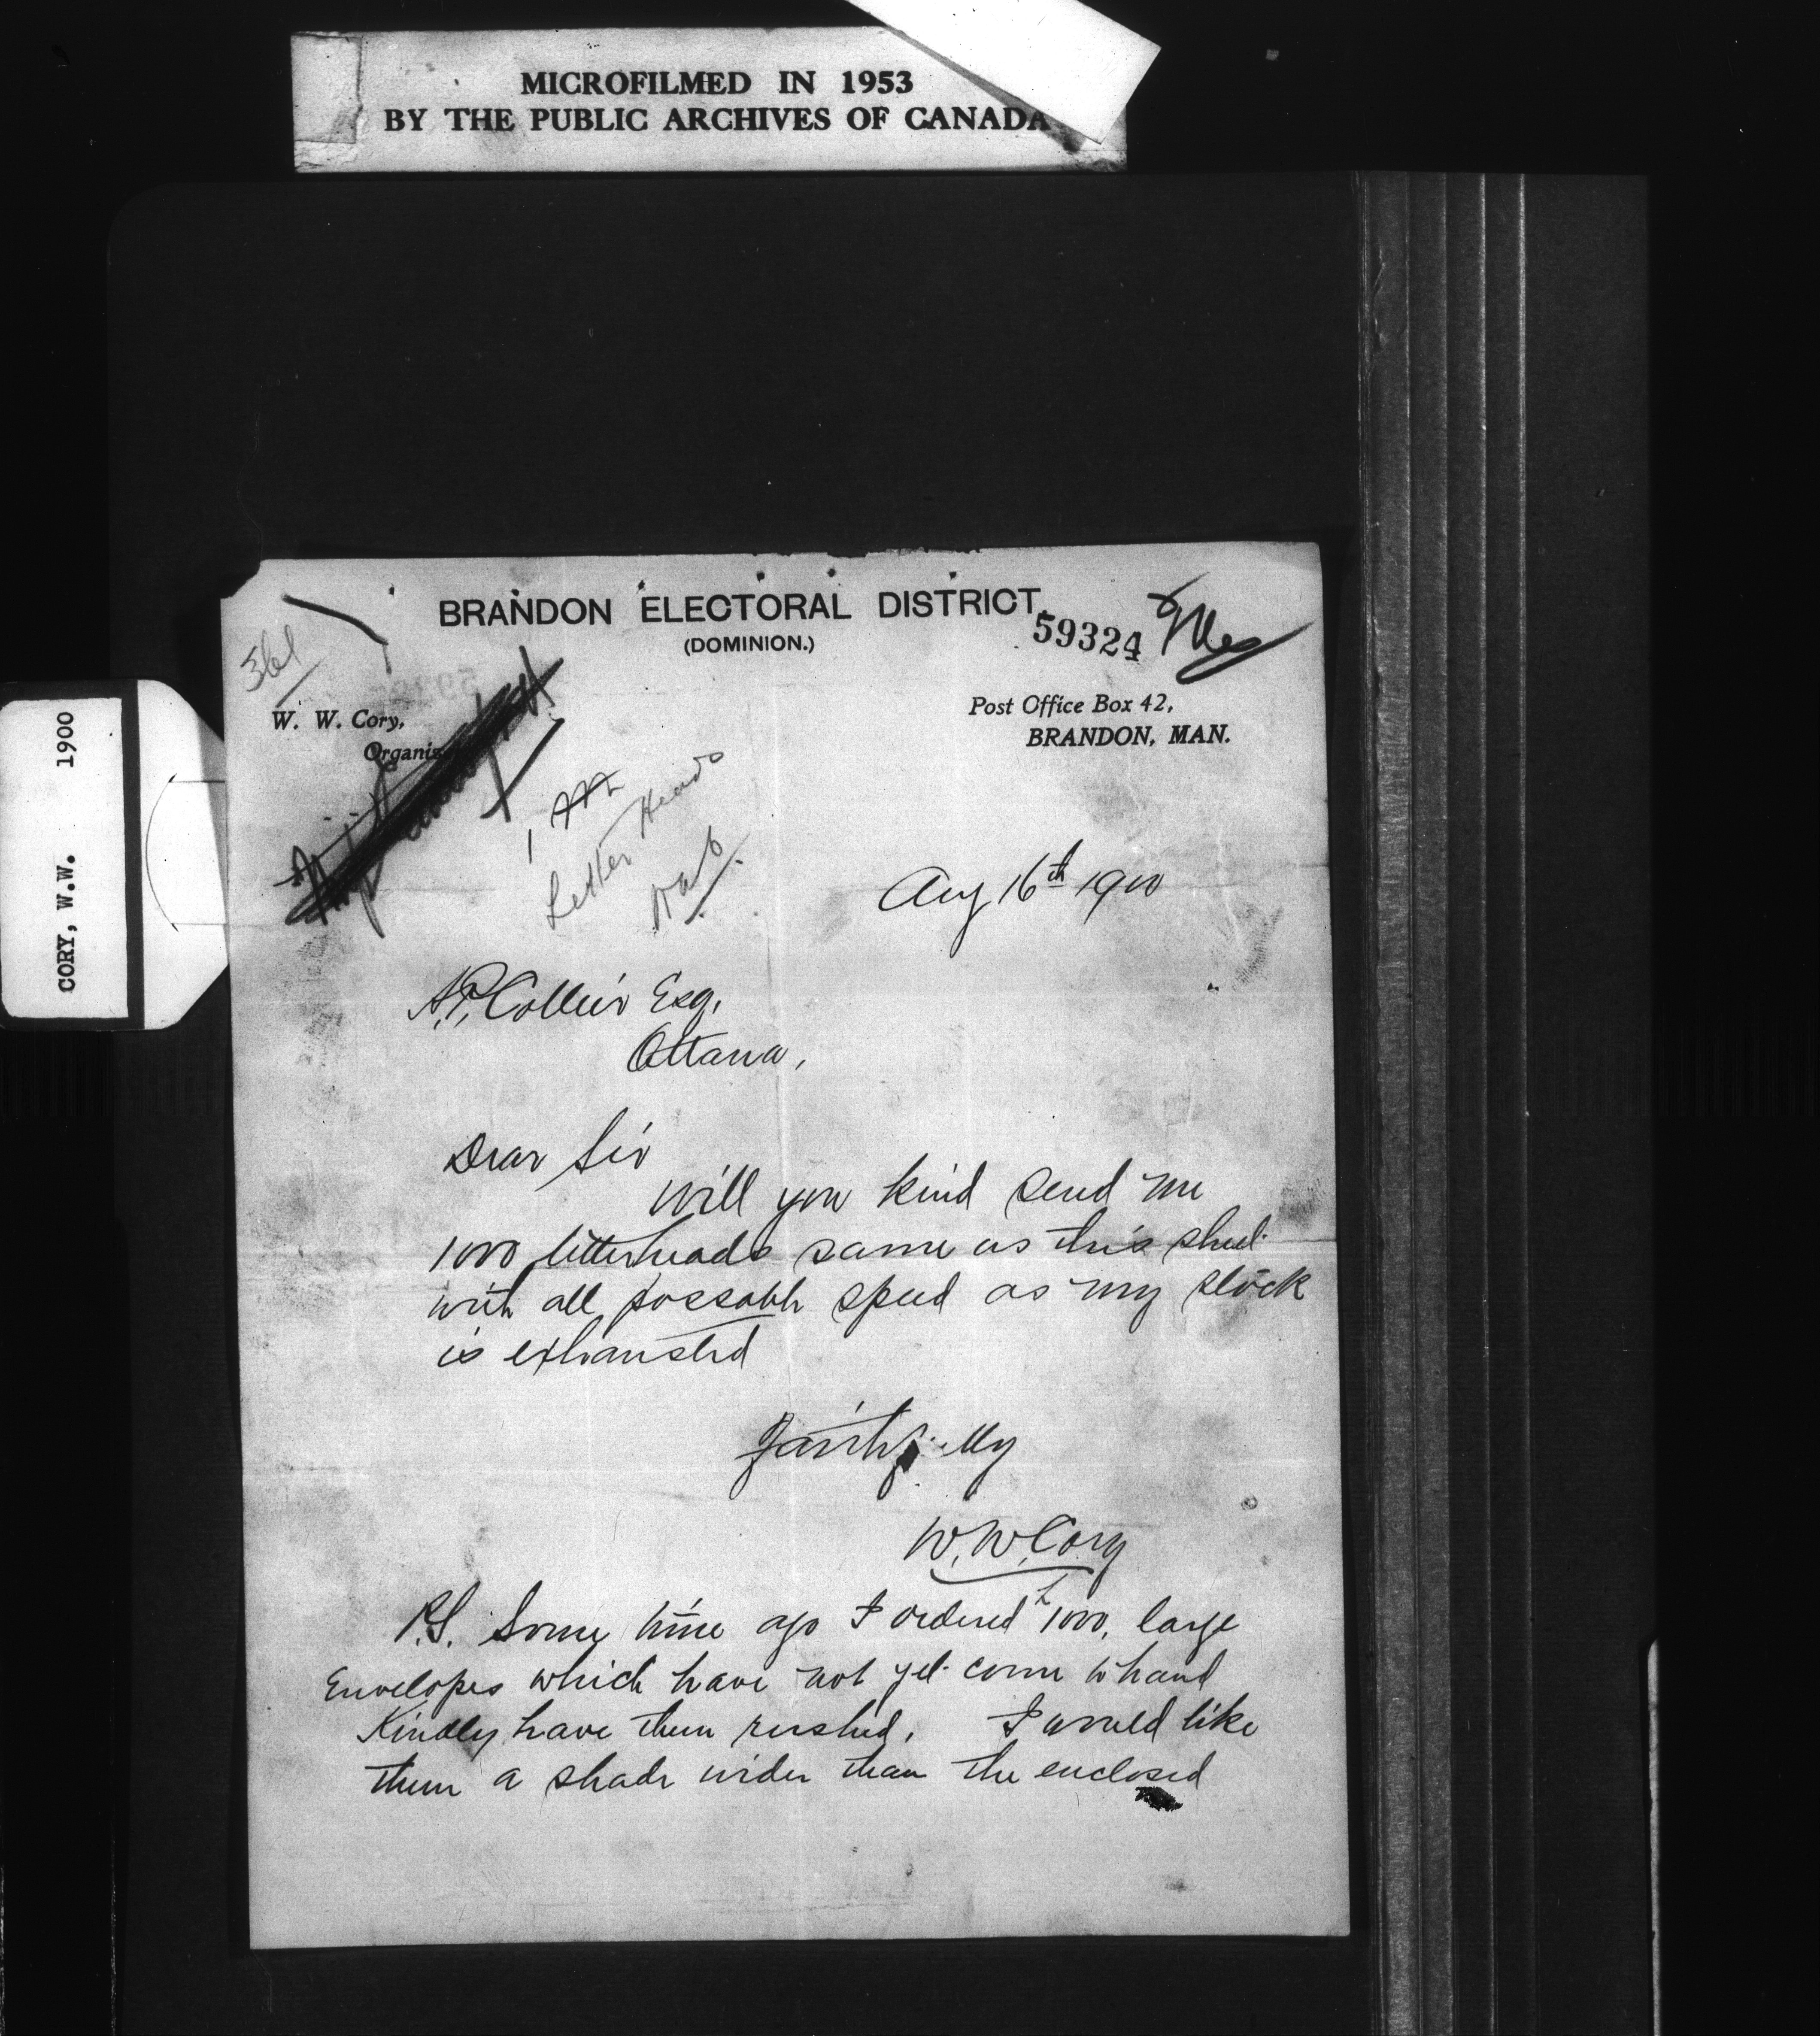 MICROFILMED IN 1953
BY THE PUBLIC ARCHIVES OF CANADA
CORY, W.W. 1900
BRANDON ELECTORAL DISTRICT.
(DOMINION.)
59324
361
W. W. Cory,
Organiz
Post Office Box 42,
BRANDON, MAN.
Letter Heads
Aug 16th 1900
A.P. Collier Esq,
Ottawa,
Dear Sir
Will you kind send me
1000 letterheads same as this sheet
with all possable speed as my stock
is exhausted
Faithfully
W.W. Cory
P.S. Some time ago I ordered 1000, large
Envelopes which have not yet come to hand
Kindly have them rushed, I would like
them a shade wider than the enclosed